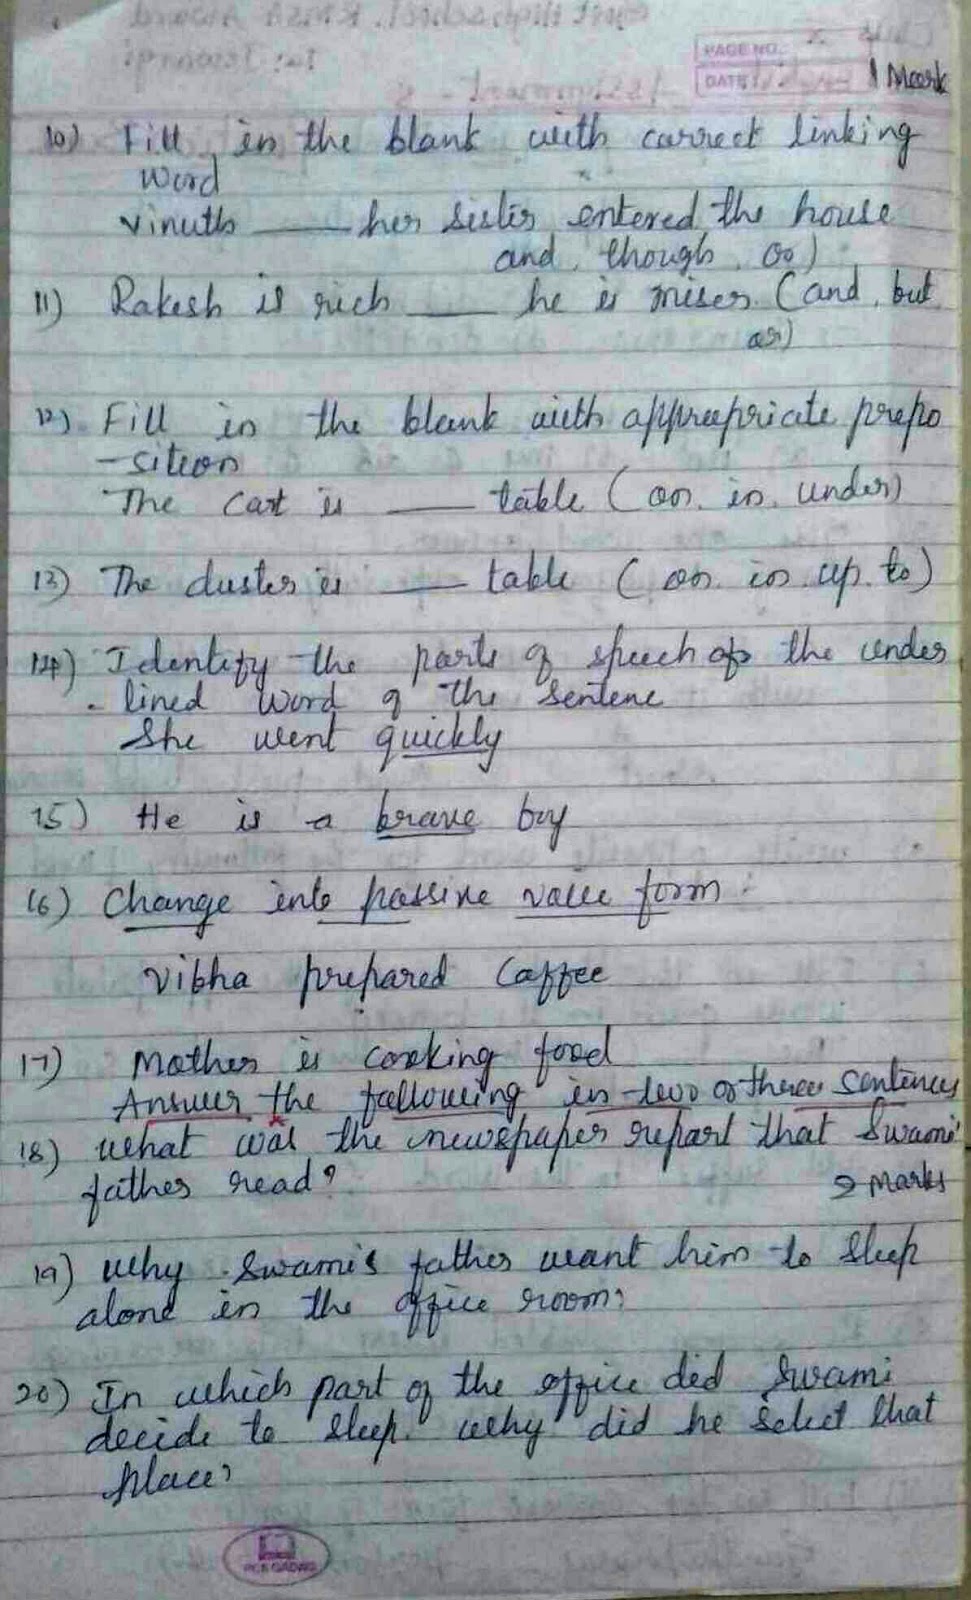 PAGE NO.
DATE
1 Mark
10) Fill in the blank with correct linking
word
Vinuth ___ her sister entered the house
and, though, or)
11) Rakesh is rich ___ he is miser (and, but
or)
12) Fill in the blank with appropriate prepo
-sition
The cat is ___ table (on, in, under)
13) The duster is ___ table (on, in, up, to)
14) Identify the parts of speech of the under
lined word of the sentence
She went quickly
15) He is a brave boy
16) Change into passive voice form:
Vibha prepared Coffee
17) Mother is cooking food
Answer the following in two or three sentences
18) What was the newspaper report that Swami
father read?
2 Marks
19) Why Swami's father want him to sleep
alone in the office room?
20) In which part of the office did Swami
decide to sleep. Why did he select that
place?